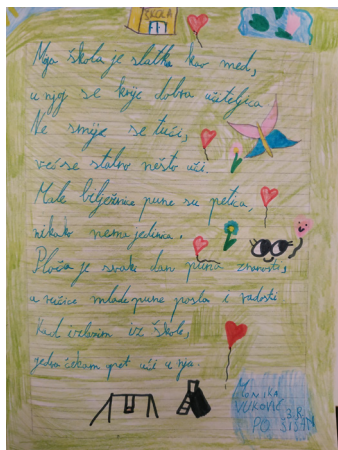 ŠKOLA
Moja škola je slatka kao med,
u njoj se krije dobra učiteljica.
Ne smije se tući,
već se stalno nešto uči.
Male bilježnice pune su petica,
nikako nema jedinica.
Ploča je svaki dan puna znanosti,
a ručice mlade pune posla i radosti
Kad izlazim iz škole,
jedva čekam opet ući u nju.
MONIKA
VUKOVIĆ
3.R
PO ŠIŠAN